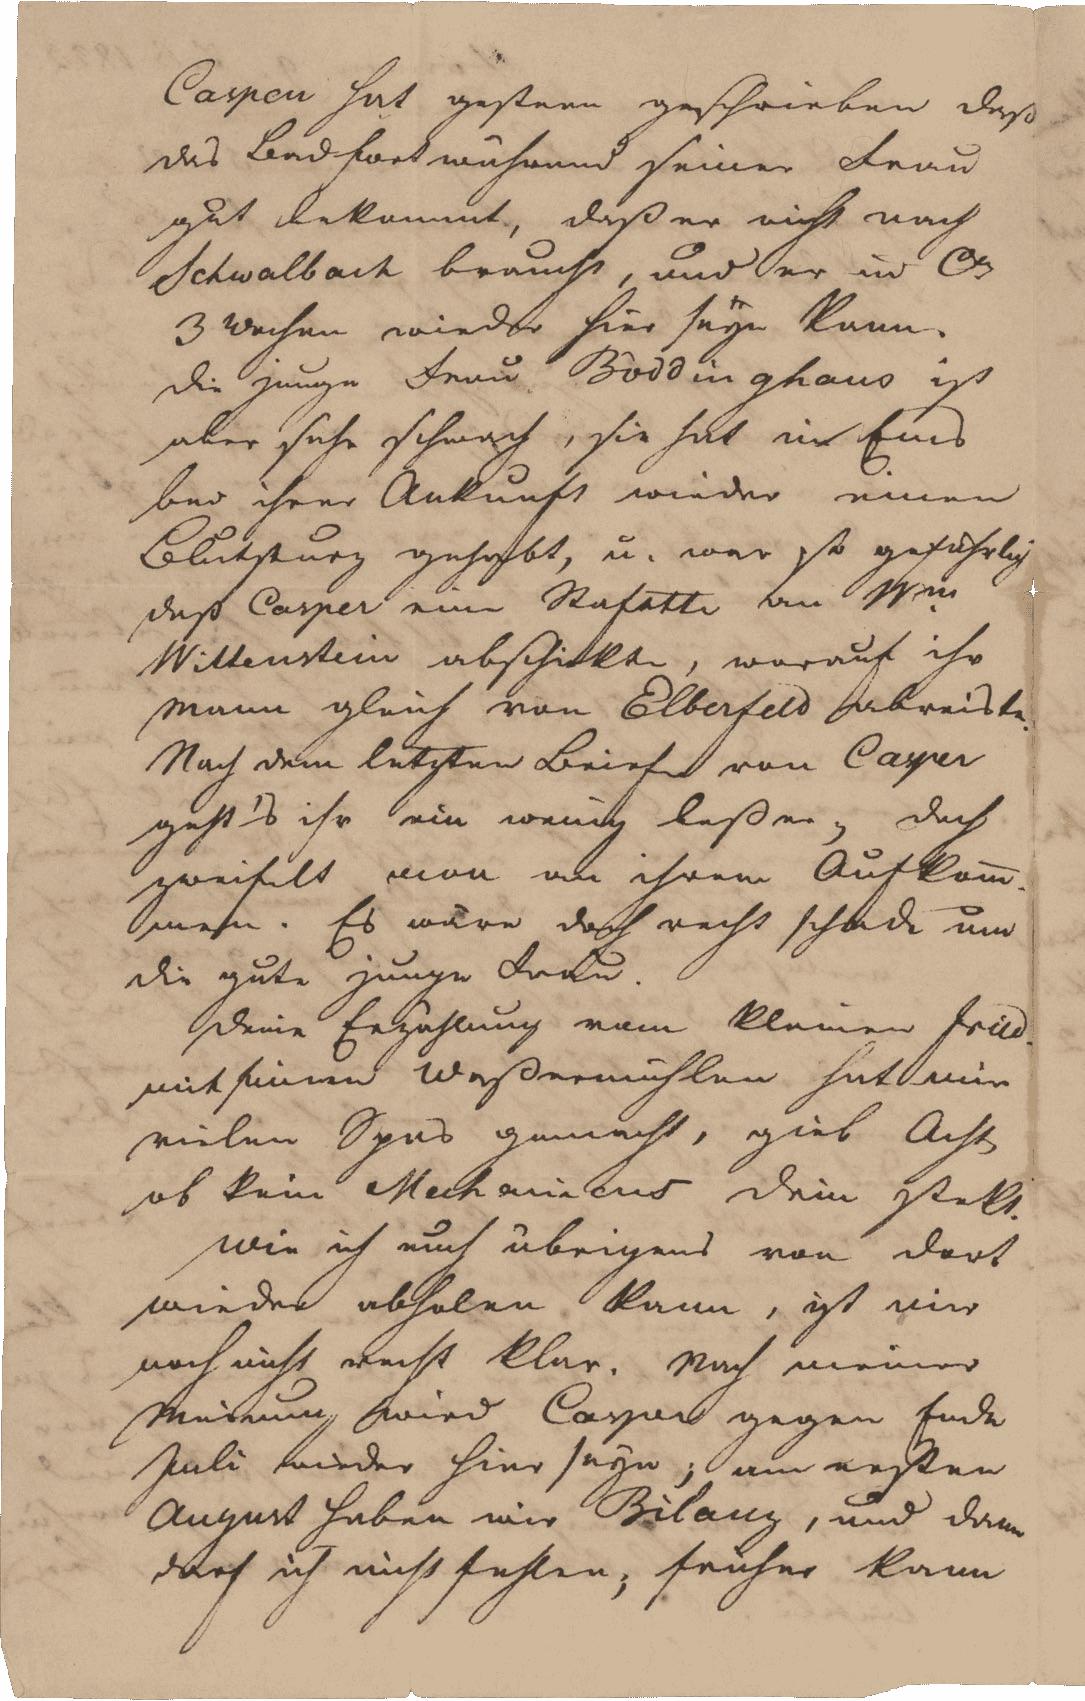 Casper hat gestern geschrieben daß
das Bad fortwährend seiner Frau
gut bekommt, daß er nicht nach
Schwalbach braucht, und er in Ca
3 Wochen wieder hier seÿn kann.
Die junge Frau Böddinghaus ist
aber sehr schwach, sie hat in Ems
bei ihrer Ankunft wieder einen
Blutsturz gehabt, u. war so gefährlich
daß Casper eine Stafette an Wm
Wittenstein abschickte, worauf ihr
Mann gleich von Elberfeld abreiste.
Nach dem letzten Briefe von Casper
geht's ihr ein wenig beßer; doch
zweifelt man an ihrem Aufkom̄-
men. Es wäre doch recht schade um
die gute junge Frau.
Deine Erzählung vom kleinen Fried.
mit seinen Waßermühlen hat mir
vielen Spas gemacht, gieb Acht
ob kein Mechanicus drin stekt.
Wie ich euch übrigens von dort
wieder abholen kann, ist mir
noch nicht recht klar. Nach meiner
Meinung wird Casper gegen Ende
Juli wieder hier seÿn; am ersten
August haben wir Bilanz, und dann
darf ich nicht fehlen; früher kann